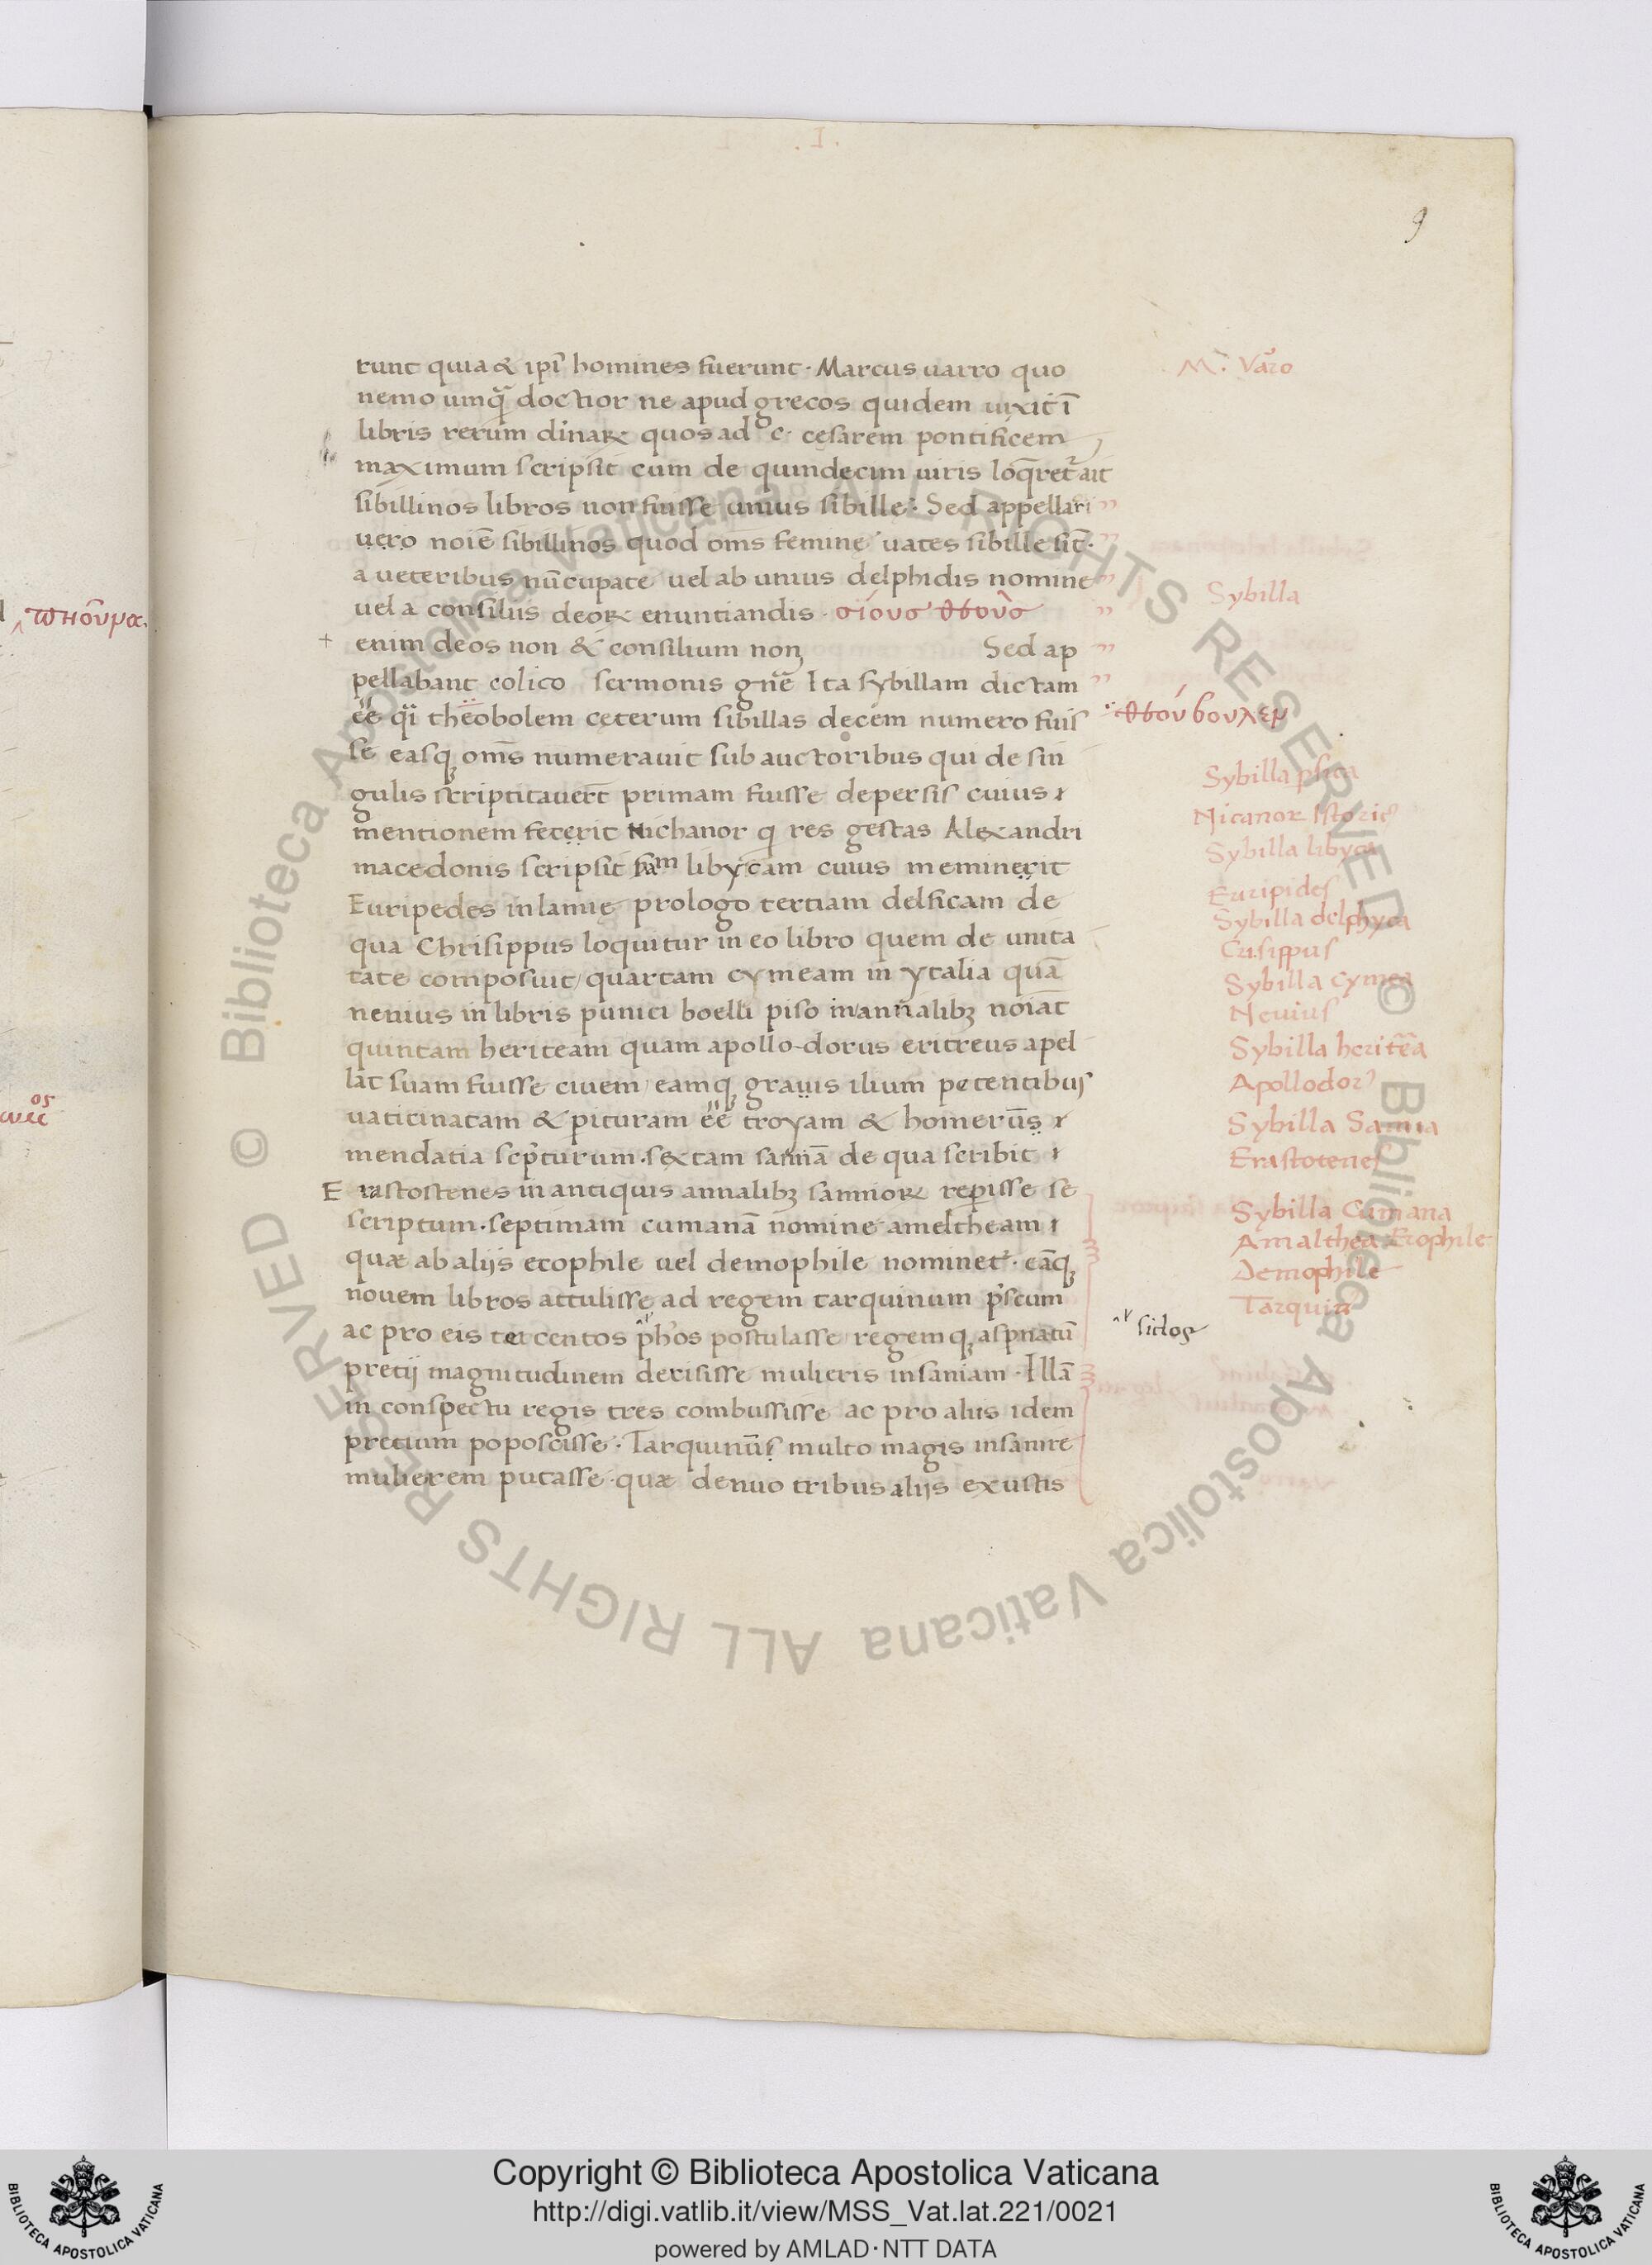 9
runt quia & ipī homines fuerunt · Marcus uarro quo
nemo umq̄ doctior ne apud grecos quidem uixit ī
libris rerum diuinaꝝ quos ad c· cęsarem pontificem
maximum scripsit cum de quindecim uiris loq̄ret᷑ ait
sibillinos libros non fuisse unius sibille · Sed appellari
uero noiē sibillinos quod om̄s femine uates sibille sīt ·
a ueteribus nūcupate uel ab unius delphidis nomine
uel a consiliis deoꝝ enuntiandis · σίουσ θεοὺσ
+ enim deos non & consilium non Sed ap
pellabant eolico sermonis gn̄e Ita sybillam dictam
ēē q̄i theobolem cęterum sibillas decem numero fuis
se easq; om̄s numerauit sub auctoribus qui de sin
gulis scriptitauer̄t primam fuisse de persis cuius
mentionem fecerit Nichanor q res gestas Alexandri
macedonis scripsit libycam cuius meminerit
Euripedes in lamię prologo tertiam delficam de
qua Chrisippus loquitur in eo libro quem de uinita
tate composuit / quartam cymeam in ytalia quā
neuius in libris punici boelli piso in annalibꝫ noīat
quintam heriteam quam apollo-dorus eritreus apel
lat suam fuisse ciuem eamq; grauis ilium petentibus
uaticinatam & pituram ēē troyam & homerūs
mendatia scp̄turum · sextam samiā de qua scribit
Erastostenes in antiquis annalibꝫ samioꝝ reperisse se
scriptum · septimam cumanā nomine ameltheam
quæ ab alijs erophile uel demophile nominet᷑ · eāq;
nouem libros attulisse ad regem tarquinum p̄scum
ac pro eis tercentos ph̄os postulasse regemq; aspnatū
pretij magnitudinem derisisse mulieris insaniam · Illā
in conspectu regis tres combussisse ac pro aliis idem
pretium poposcisse · Tarquinūs multo magis insanire
mulierem putasse · quæ denuo tribus alijs exustis
M· Varo
Sybilla
θεούβουλεμ
Sybilla psica
Nicanor Istoric
Sybilla libyca
Euripides
Sybilla delphyca
Crisippus
Sybilla cymea
Neuius
Sybilla heritēa
Apollodor
Sybilla Samia
Erastotenes
Sybilla Cumana
Amalthea Erophile
Demophile
Tarquin
πνοῦμα.
Copyright © Biblioteca Apostolica Vaticana
http://digi.vatlib.it/view/MSS_Vat.lat.221/0021
powered by AMLAD·NTT DATA
BIBLIOTECA APOSTOLICA VATICANA
BIBLIOTECA APOSTOLICA VATICANA
© Biblioteca Apostolica Vaticana ALL RIGHTS RESERVED © Biblioteca Apostolica Vaticana ALL RIGHTS RESERVED